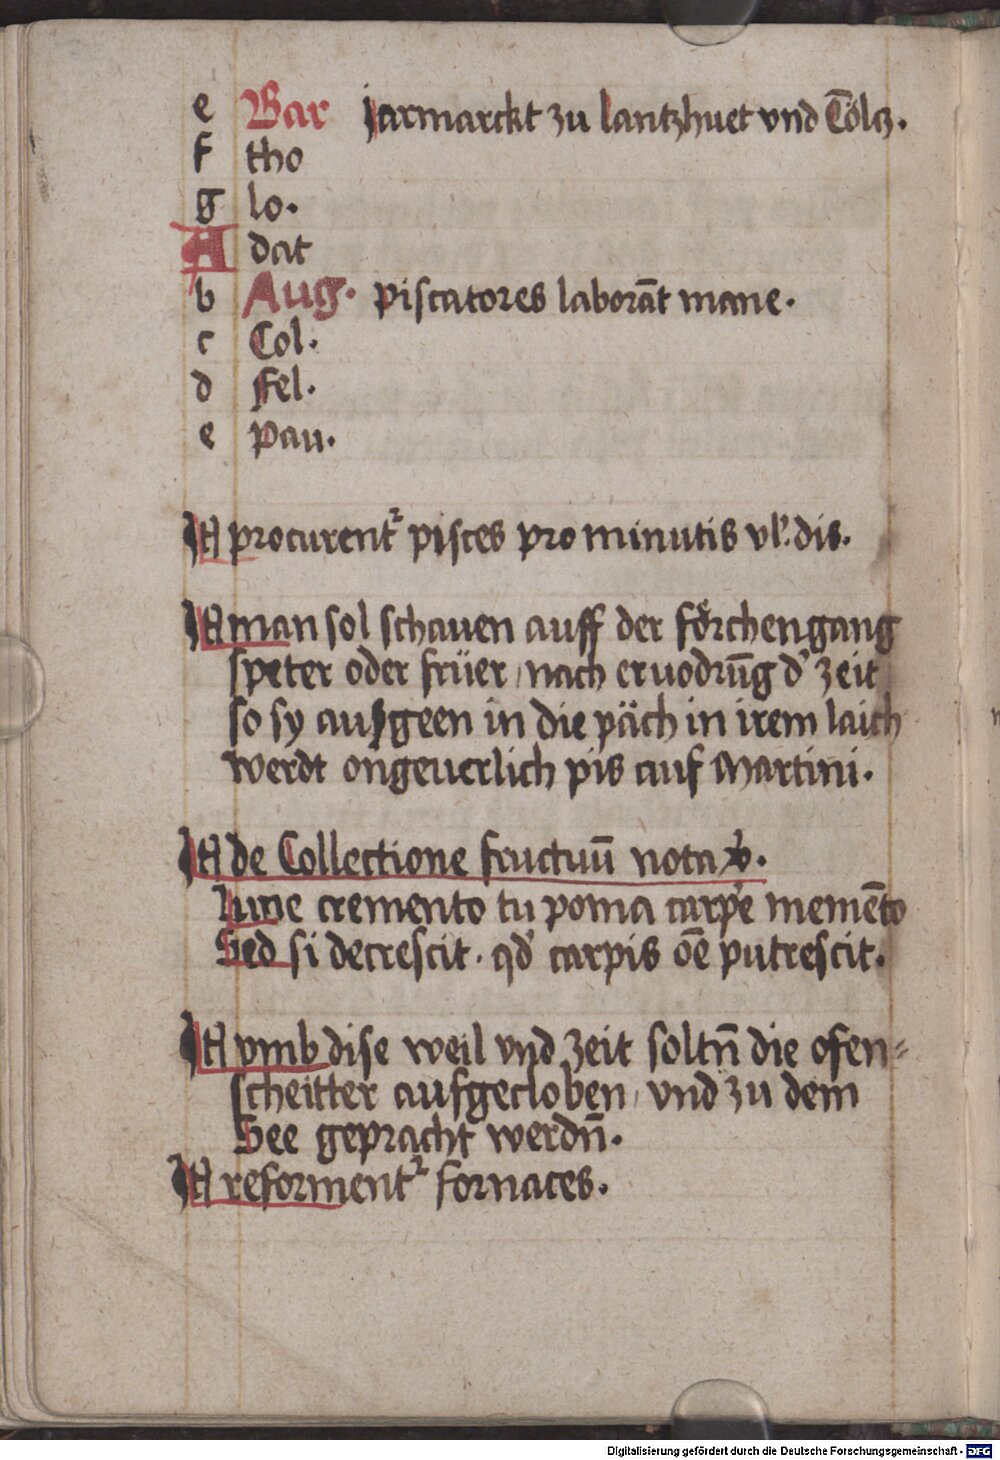 e Bar Jarmarckt zu lantzhuet vnd Tölcz.
f tho
g lo.
A dat
b Aug. Piscatores laborāt mane.
c Col.
d Fel.
e Pau.
Jt procurent² pisces pro minutis vl'. dis.
Jt man sol schauen auff der förchengang
speter oder früer / nach eruodrūg d' zeit
so sy ausgeen in die päch in irem laich
werdt ongeuerlich pis auf Martini.
Jt de Collectione fructuū nota
Lune cremento tu poma carpe memēto
Sed si decrescit. qd' carpis oē putrescit.
Jt vmb dise weil vnd zeit soltn̄ die ofen=
scheitter aufgecloben / vnd zu dem
See gepracht werdn̄.
Jt reforment² fornaces.
Digitalisierung gefördert durch die Deutsche Forschungsgemeinschaft - DFG